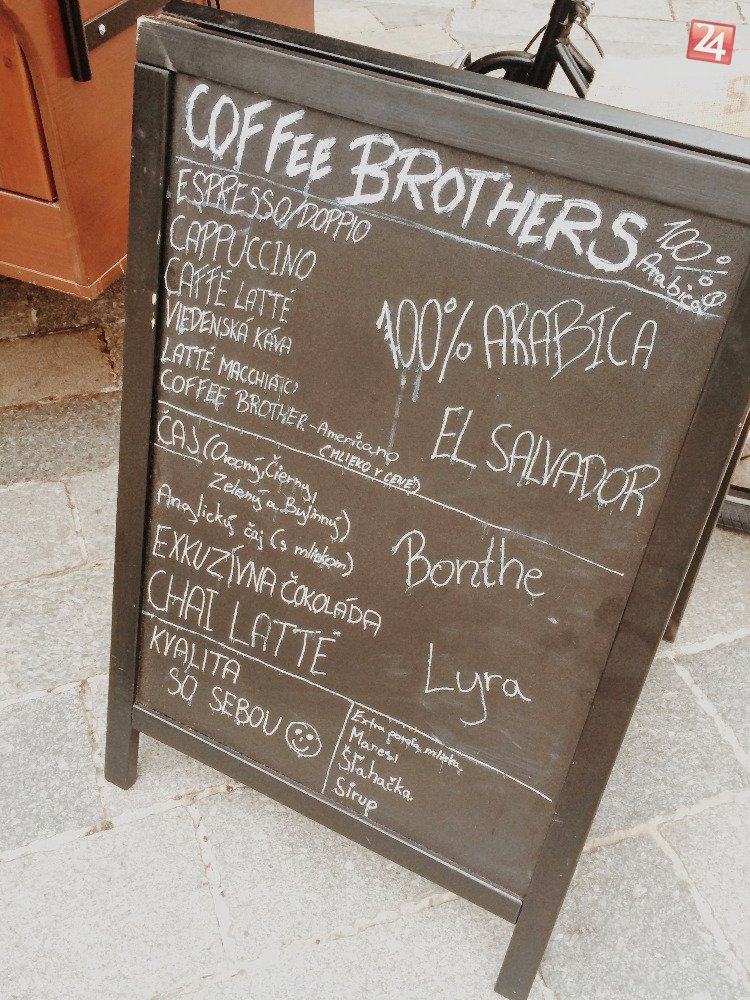 24
COFFEE BROTHERS
100%
Arabica
ESPRESSO/DOPPIO
CAPPUCCINO
CAFFÉ LATTÉ
VIEDENSKÁ KÁVA
LATTÉ MACCHIATO
COFFEE BROTHER-Americano
(MLIEKO V CENE)
100% ARABICA
EL SALVADOR
ČAJ (Ovocný, Čierny,
Zelený a Bylinný)
Anglický čaj (s mliekom)
EXKUZÍVNA ČOKOLÁDA
CHAI LATTÉ
Bonthe
Lyra
KVALITA
SO SEBOU
Extra porcia mlieka
Maresi
Šľahačka
Sirup